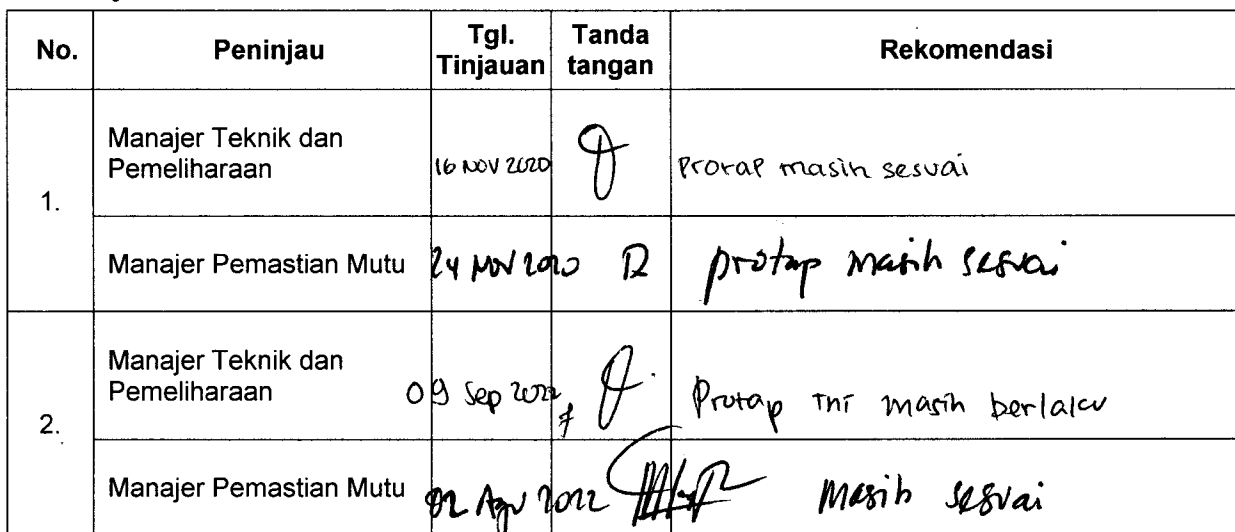 No. Peninjau Tgl. Tinjauan Tanda tangan Rekomendasi
1.
Manajer Teknik dan Pemeliharaan 16 NOV 2020 Protap masih sesuai
Manajer Pemastian Mutu 24 NOV 2020 protap masih sesuai
2.
Manajer Teknik dan Pemeliharaan 09 Sep 2022 Protap ini masih berlaku
Manajer Pemastian Mutu 02 Agu 2022 masih sesuai